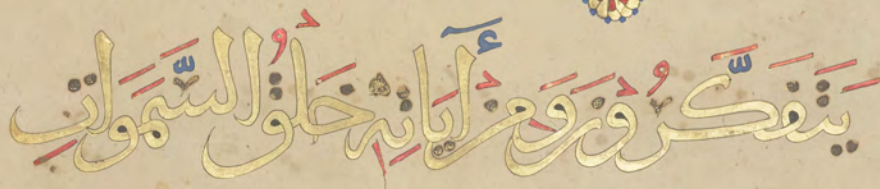 يَتَفَكَّرُونَ وَمِنْ ءَايَاتِهِ خَلْقُ السَّمَوَاتِ